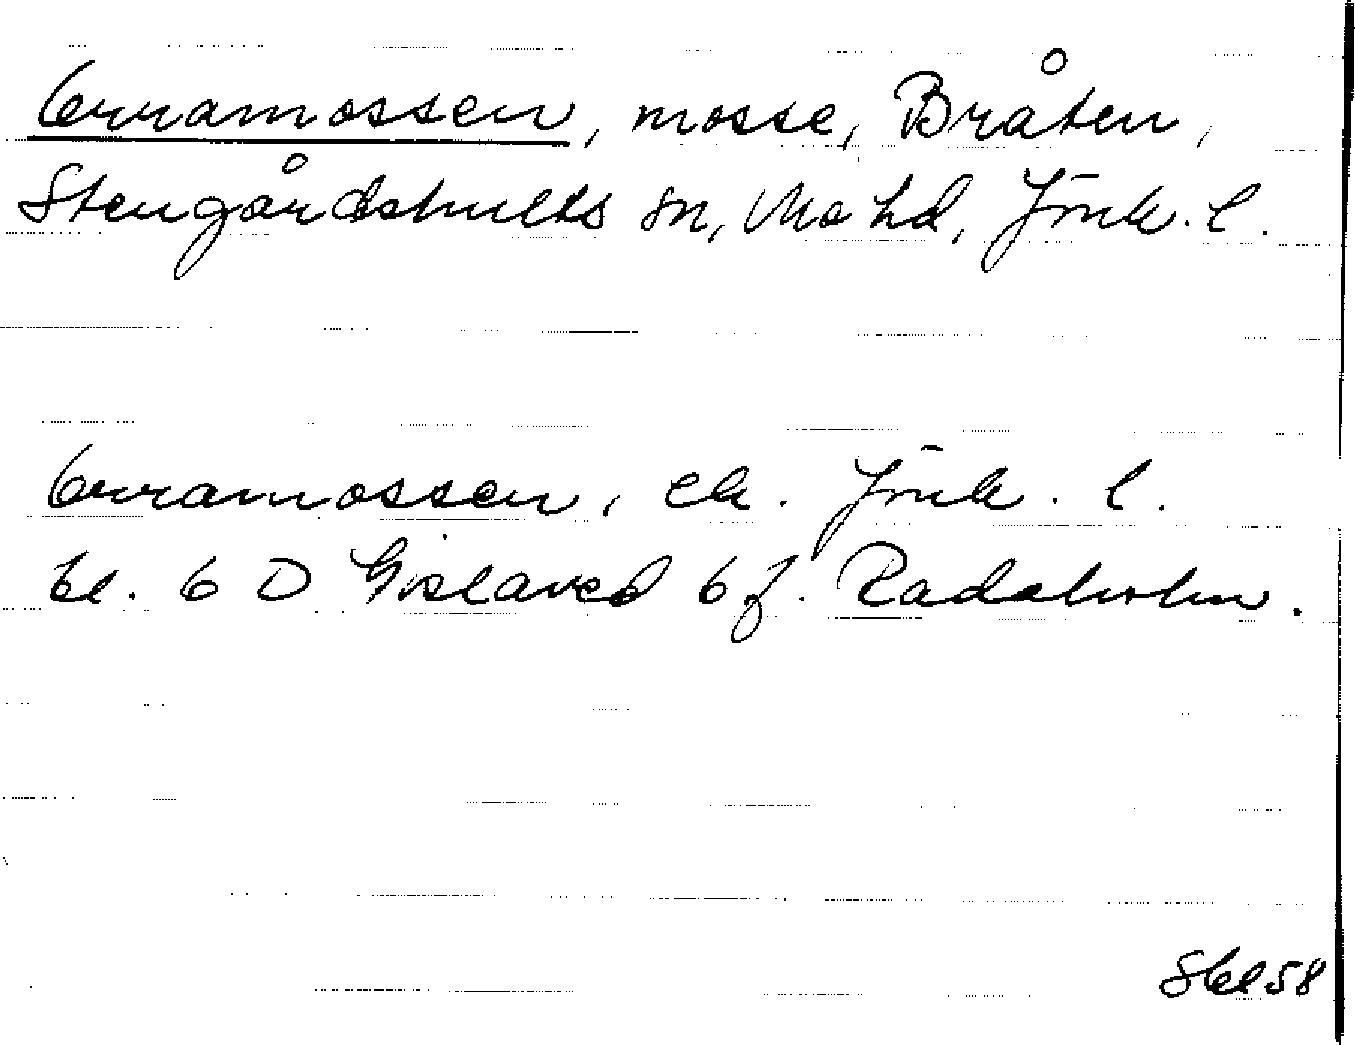 Orramossen, mosse, Bråten,
Stengårdshults sn, Mo hd, Jönk. l.
Orramossen, ek. Jönk. l.
bl. 6 D Gislaved 6 f. Radaholm.
58